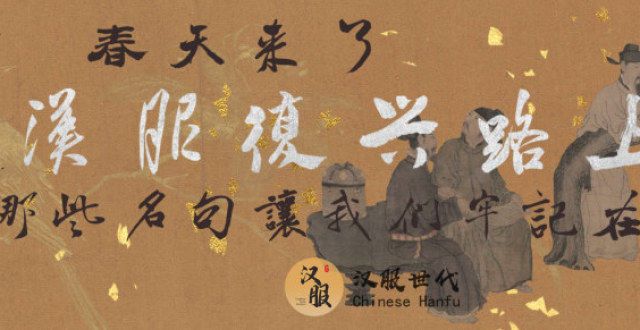 春天来了
漢服復兴路上
那些名句讓我们牢記在
汉服
汉服世代
Chinese Hanfu